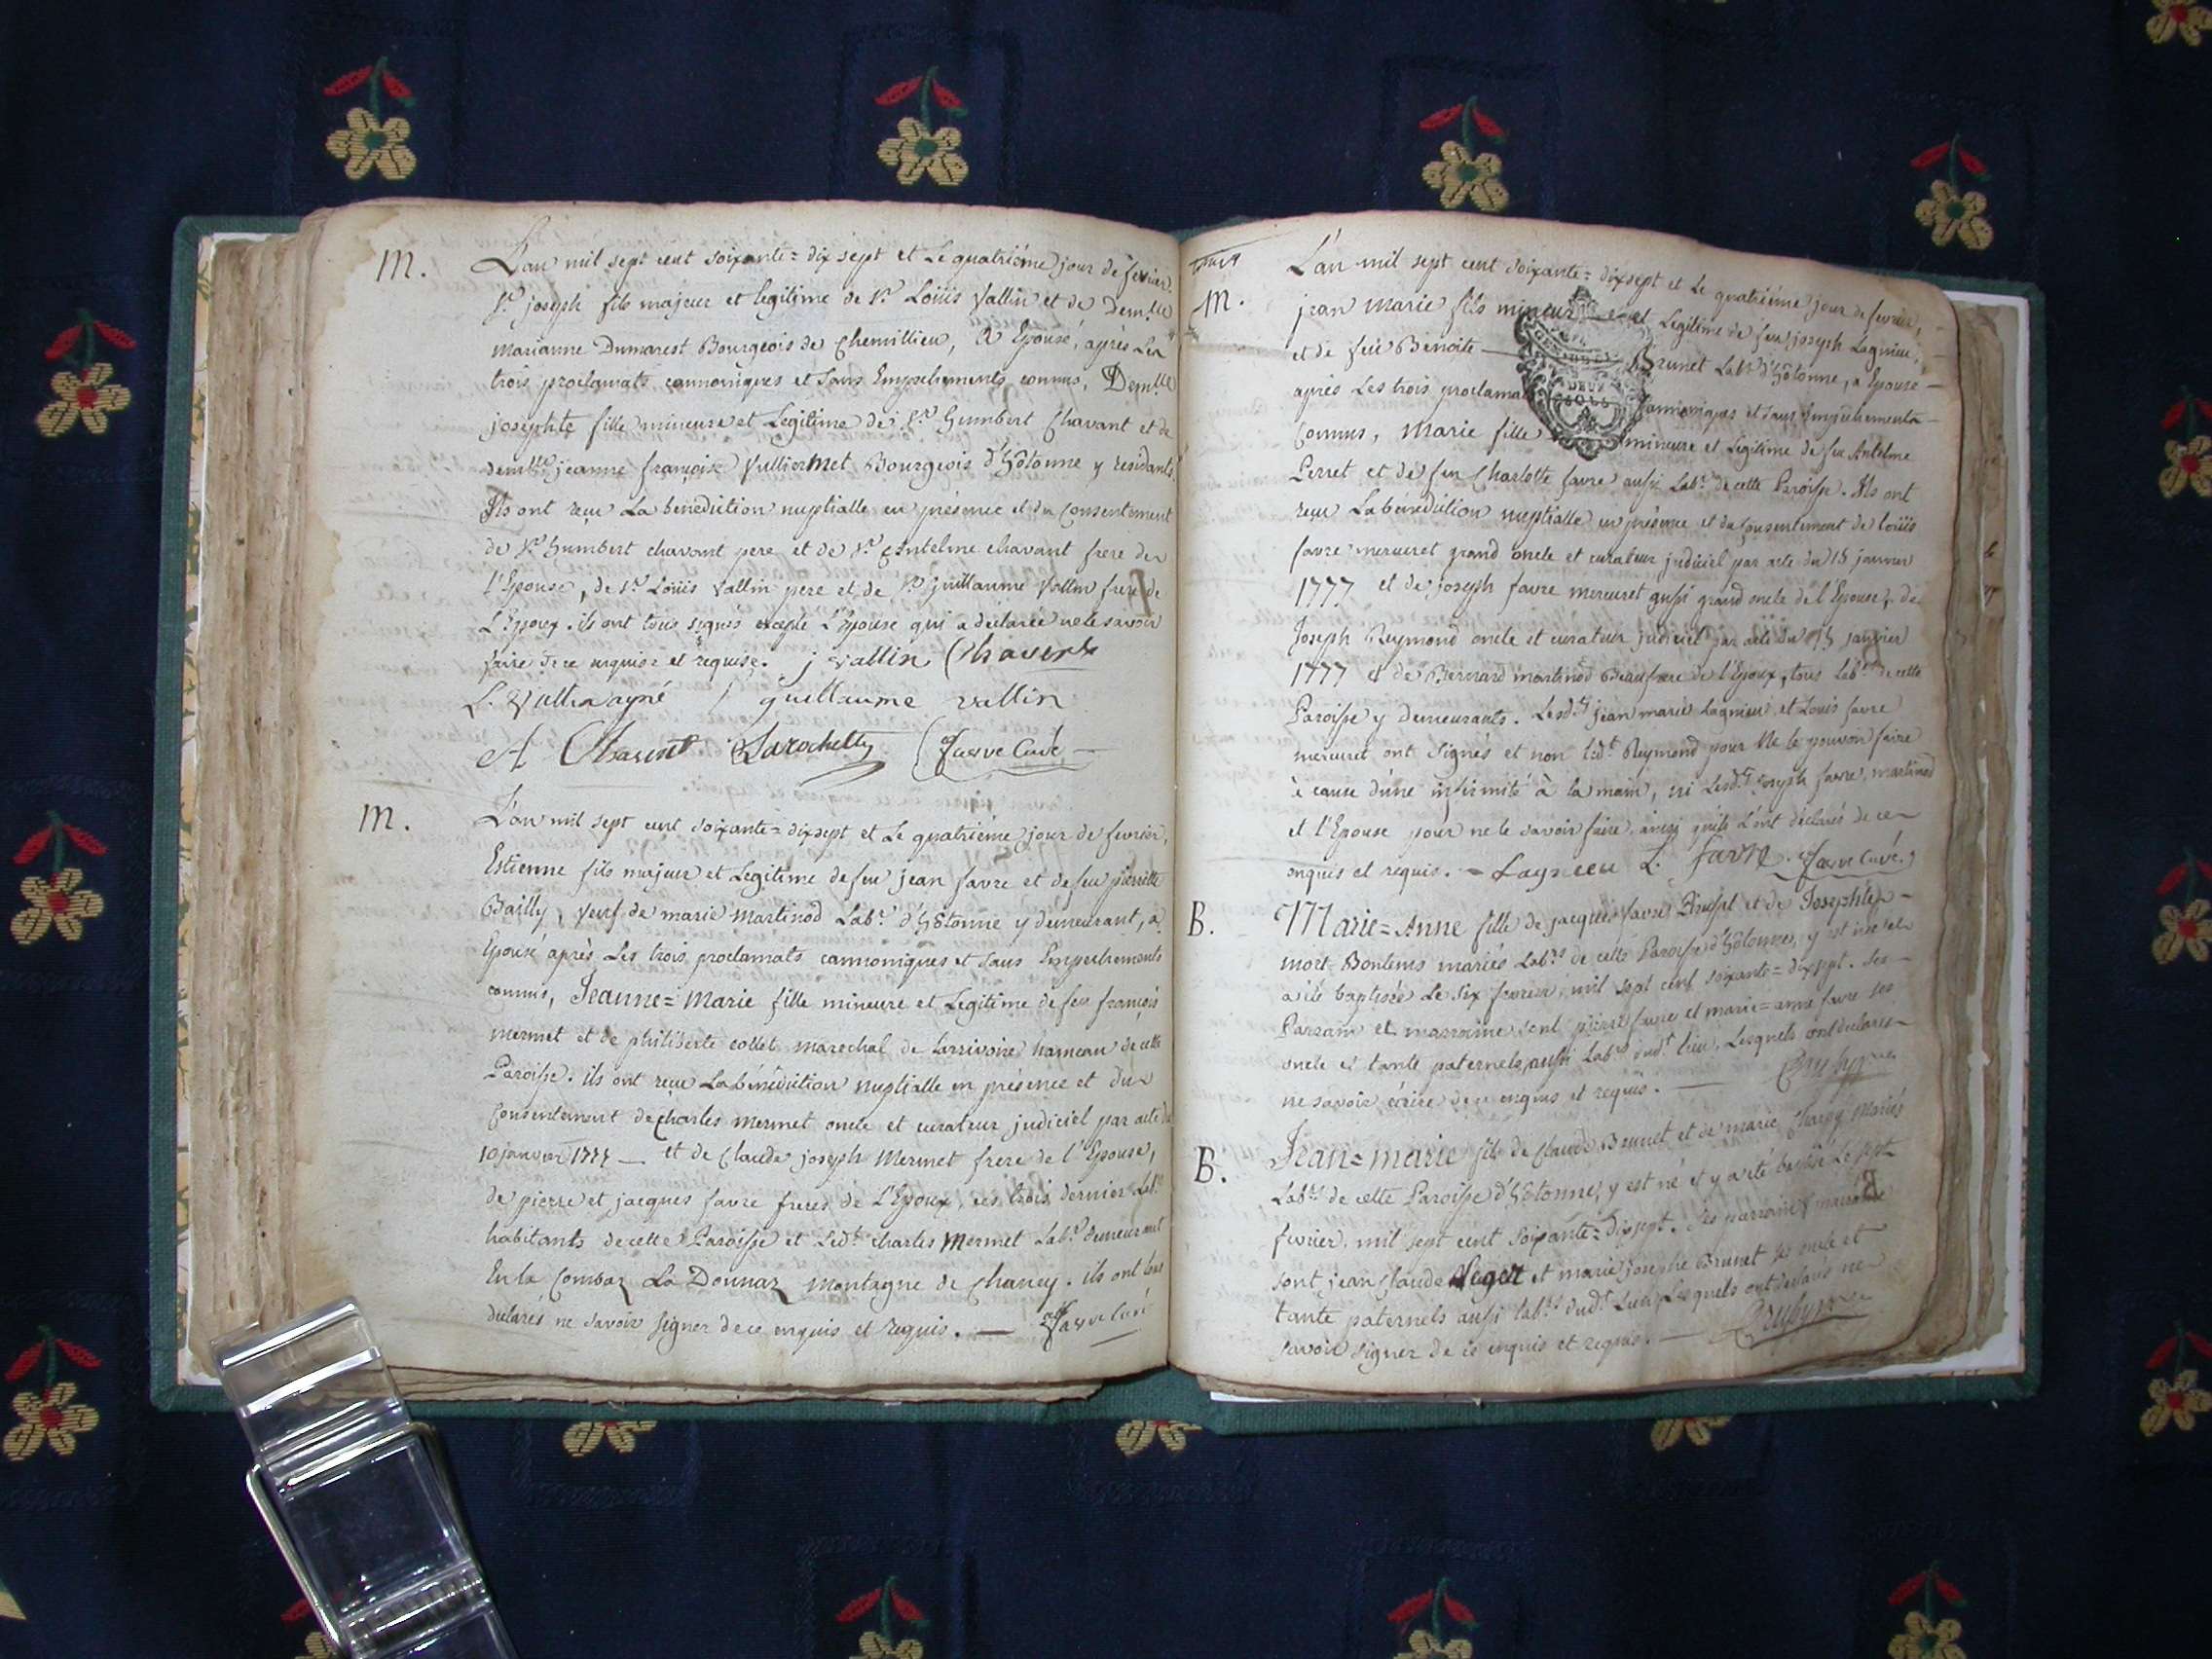 M.
L'an mil sept cent soixante=dix sept et Le quatriéme jour de fevrier.
Sr. joseph fils majeur et legitime de Sr. Loüis Vallin et de Demlle
Marianne Dumarest Bourgeois de Chemillieu, A Epousé, après Les
trois proclamats cannoniques et sans Empechements connus, Demlle
josephte fille mineure et Legitime de Sr. humbert Chavant et de
demlle jeanne françoise VulliermeT Bourgeois d'hôtonne y residants.
Ils ont reçu La benediction nuptialle en présence et du Consentement
de Sr. humbert chavant pere et de Sr. antelme chavant frere de
l'Epouse, de Sr. Loüis Vallin pere et de Sr. guillaume Vallin frere de
L'Epoux. ils ont tous signés excepté L'Epouse qui a déclarée ne le savoir
faire de ce enquise et requise. j vallin Chavent
L. Vallin ayné guillaume vallin
A Chavent Larochette favre Curé
M.
L'an mil sept cent soixante=dixsept et Le quatriéme jour de fevrier,
Estienne fils majeur et Legitime de feu jean favre et de feu pierrette
Bailly, veuf de marie Martinod Labr. d'hôtonne y demeurant, a
Epousé après Les trois proclamats cannoniques et sans Empechements
connus, Jeanne=Marie fille mineure et Legitime de feu françois
mermet et de philiberte collet marechal de larrivoire hameau de cette
Paroisse. ils ont reçu La bénédiction nuptialle en présence et du
Consentement de Charles mermet oncle et curateur judiciel par acte du
10 janvier 1777 et de Claude joseph Mermet frere de l'Epouse,
de pierre et jacques favre freres de L'Epoux, ces trois dernier Labrs.
habitants de cette Paroisse et Ledt. charles Mermet Labr. demeurant
En la Combaz La Donnaz montagne de Chaney. ils ont tous
déclarés ne savoir signer de ce enquis et requis. favre Curé
M.
L'an mil sept cent soixante=dixsept et Le quatriéme jour de fevrier,
jean Marie fils mineur et Legitime de feu joseph Lagnieu,
et de feüe Benoite Brunet Labr. d'hôtonne, a Epousé
après Les trois proclamats cannoniques et sans Empechements
DEUX SOLS
Connus, Marie fille mineure et Legitime de feu Antelme
Perret et de feu Charlotte favre aussi Labr. de cette Paroisse. Ils ont
reçu La bénédiction nuptialle en présence et du Consentement de loüis
favre mercuret grand oncle et curateur judiciel par acte du 15 janvier
1777 et de joseph favre mercuret aussi grand oncle de l'Epouse, de
Joseph Reymond oncle et curateur judiciel par acte du 15 janvier
1777 et de Bernard martinod Beaufrere de l'Epoux, tous Labrs. de cette
Paroisse y demeurants. Lesdts. jean marie Lagnieu et Louis favre
mercuret ont signés et non ledt. Reymond pour Ne le pouvoir faire
à cause d'une infirmité à la main, ni Lesdts. joseph favre, martinod
et l'Epouse pour ne le savoir faire, ainsi qu'ils L'ont déclarés de ce
enquis et requis. Laynieu L. favre favre Curé.
B.
Marie=Anne fille de jacques favre et de Josephte
mort Bontems mariés Labrs. de cette Paroisse d'hôtonne, y est née et
a été baptisée Le six fevrier mil sept cent soixante=dixsept. Ses
Parrain et marraine sont pierre favre et marie=anne favre ses
oncle et tante paternels aussi Labrs. dudt. lieu, Lesquels ont déclarés
ne savoir écrire de ce enquis et requis.
B.
Jean=marie fils de Claude Brunet et de marie Charvy Mariés
Labrs. de cette Paroisse d'hôtonne, y est né et y a été baptisé Le sept
fevrier mil sept cent soixante=dixsept. Ses parrain et marraine
sont jean Claude et marie josephe Brunet ses oncle et
tante paternels aussi labrs. dudt. Lieu, Lesquels ont déclarés ne
savoir signer de ce enquis et requis.